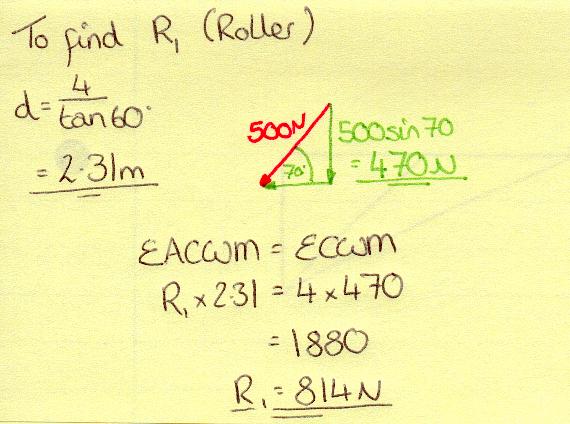 To find R₁ (Roller)
d = 4 / tan60°
= 2.31m
500N
70°
500sin70
= 470N
ΣACWM = ΣCWM
R₁ × 2.31 = 4 × 470
= 1880
R₁ = 814N